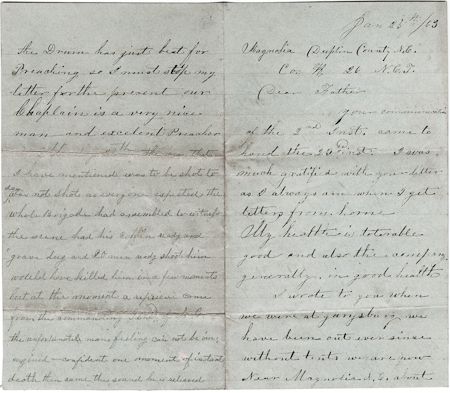 Jan 26th/63
Magnolia Duplin County N.C.
Co 26 N.C.T.
Dear Father
your communication
of the 2nd Inst. came to
hand the 23 inst. I was
much gratified with your letter
as I always am when I get
letters from home
My health is tolerable
good and also the company
generally, in good health
I wrote to you when
we were at garysburg we
have been out ever since
without tents we are now
Near Magnolia N.C. about
the Drum has just beat for
Preaching so I must stop my
letter for the present our
Chaplain is a very nice
man and excelent Preacher
the man that
I have mentioned was to be shot to
day was not shot as everyone expected the
whole Brigade had assembled to witness
the scene had his coffin redy and
grave dug and men redy shoot him
would have killed him in a few moments
but at the moment a reprieve came
from the commanding
the unfortunate mans feeling can not be im
agined confident one moment of instant
death then came the sound he is released